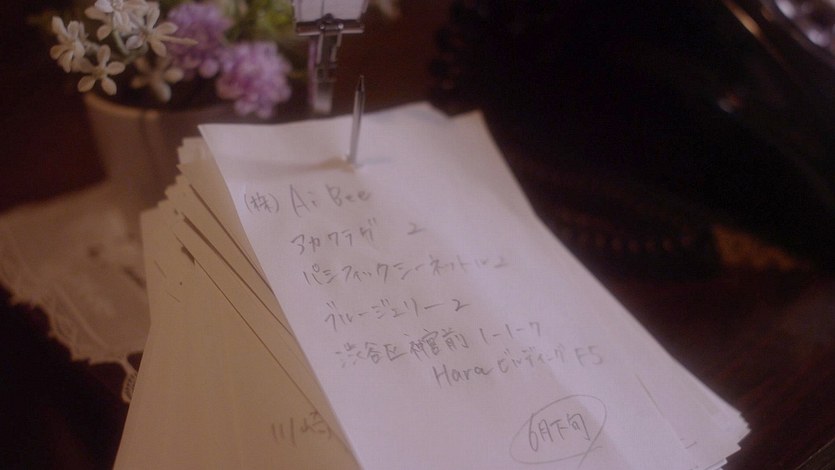 (株) Ai Bee
アカクラゲ 2
パシフィックシーネットル 2
ブルージェリー 2
渋谷区神宮前 1-1-7
Hara ビルディング F5
6月下旬
川崎